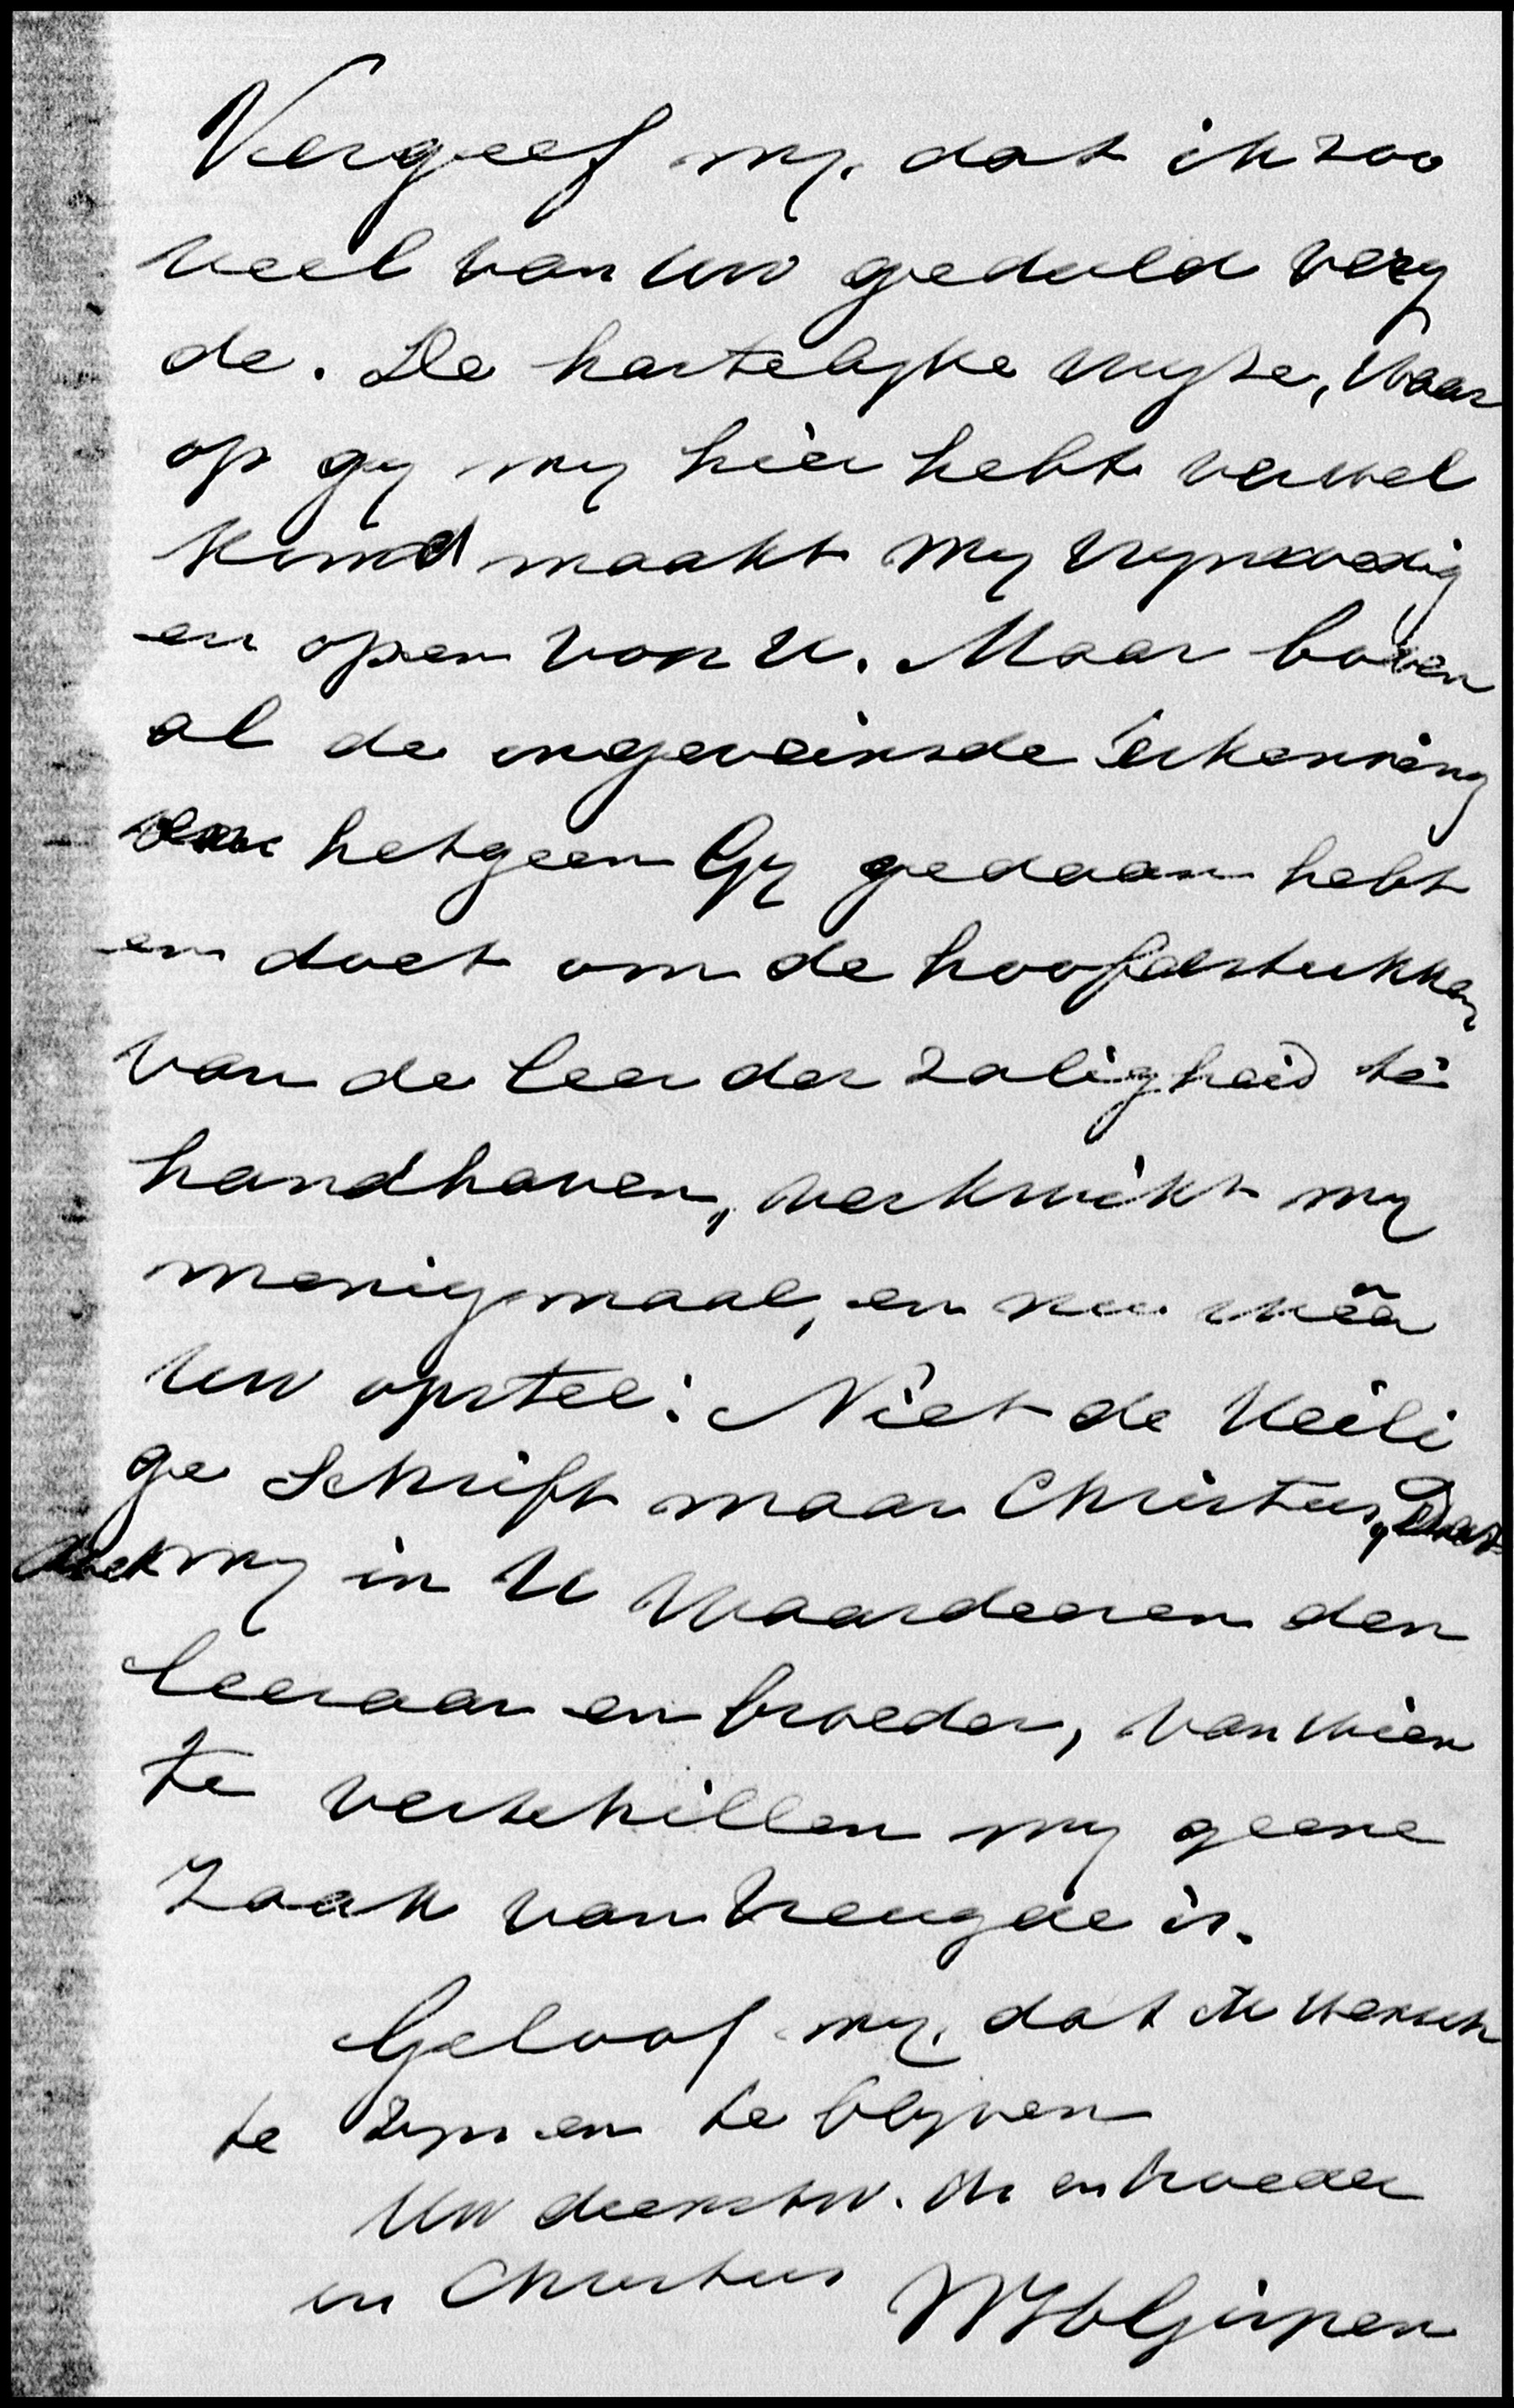 Vergeef my, dat ik zoo
veel van uw geduld verg
de. De hartelyke wyze, waar
op gy my hier hebt verwel
komd maakt my vrymoedig
en open voor U. Maar boven
al de ongeveinsde erkenning
van hetgeen Gy gedaan hebt
en doet om de hoofdstukken
van de leer der zaligheid te
handhaven, verkwikt my
menigmaal, en nu weêr
uw opstel: Niet de Heili
ge Schrift maar Christus,
my in U waardeeren den
leeraar en broeder, van wien
te verschillen my geene
zaak van vreugde is.
Geloof my, dat ik wensch
te zyn en te blyven
Uw dienstw. en broeder
in Christus